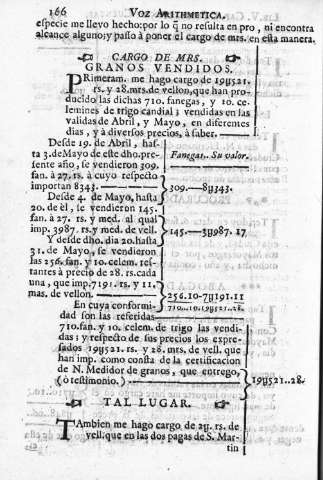 166 VOZ ARITHMETICA.
especie me llevo hecho:por lo q̃ no resulta en pro, ni encontra
alcance alguno:y passo à poner el cargo de mrs. en esta manera.
CARGO DE MRS.
GRANOS VENDIDOS.
PRimeram. me hago cargo de 19y521.
rs. y 28.mrs.de vellon,que han pro-
ducido las dichas 710. fanegas, y 10. ce-
lemines de trigo candial; vendidas en las
validas de Abril, y Mayo, en diferentes
dias, y à diversos precios, à saber.
Desde 19. de Abril, has-
ta 3.deMayo de este dho.pre-
sente año, se vendieron 309.
fan.à 27. rs. à cuyo respecto
importan 8343.
Fanegas.. Su valor.
309.--8y343.
Desde 4. de Mayo, hasta
20. de èl, se vendieron 145.
fan. à 27. rs. y med. al qual
imp. 3987. rs. y med. de vell.
145.--3y987. 17
Y desde dho. dia 20. hasta
31. de Mayo, se vendieron
las 256. fan. y 10. celem. res-
tantes à precio de 28. rs. cada
una, que imp.7191. rs. y 11.
mas. de vellon.
256.10-7y191.11
En cuya conformi-
710..10.19y521.28.
dad son las referidas
710.fan. y 10. celem. de trigo las vendi-
das; y respecto de sus precios los expre-
sados 19y521. rs. y 28. mrs. de vell. que
han imp. como consta de la certificacion
de N. Medidor de granos, que entrego,
(ò testimonio.)
19y521.28.
TAL LUGAR.
TAmbien me hago cargo de 2y. rs. de
vell. que en las dos pagas de S. Mar-
tin